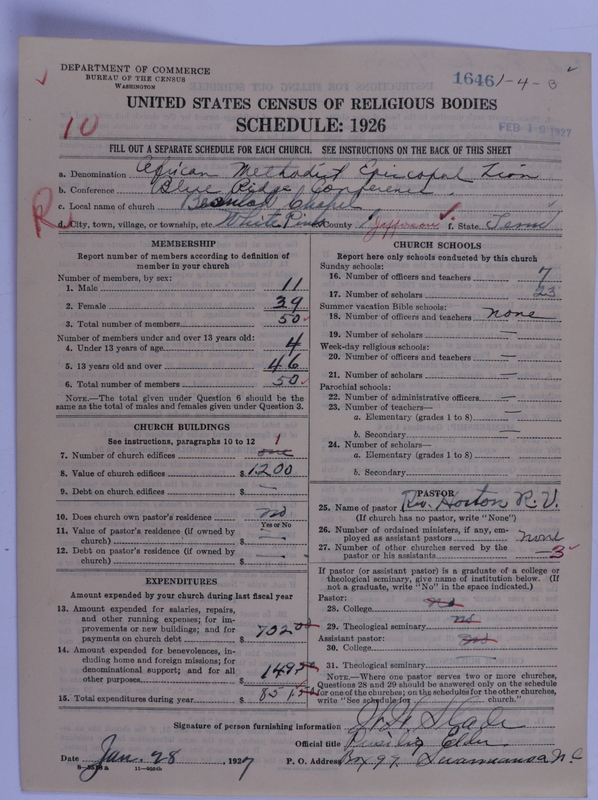 DEPARTMENT OF COMMERCE
BUREAU OF THE CENSUS
WASHINGTON
1646 1-4-3
UNITED STATES CENSUS OF RELIGIOUS BODIES
SCHEDULE: 1926
10
FEB 1 1927
FILL OUT A SEPARATE SCHEDULE FOR EACH CHURCH. SEE INSTRUCTIONS ON THE BACK OF THIS SHEET
a. Denomination African Methodist Episcopal Zion
b. Conference Blue Ridge Conference
c. Local name of church Chapel
d. City, town, village, or township, etc. White Pine County Jefferson f. State Tenn
R
MEMBERSHIP
Report number of members according to definition of member in your church
Number of members, by sex:
1. Male 11
2. Female 39
3. Total number of members 50
Number of members under and over 13 years old:
4. Under 13 years of age 4
5. 13 years old and over 46
6. Total number of members 50
NOTE.—The total given under Question 6 should be the same as the total of males and females given under Question 3.
CHURCH BUILDINGS
See instructions, paragraphs 10 to 12
7. Number of church edifices one 1
8. Value of church edifices $1200
9. Debt on church edifices $ —
10. Does church own pastor's residence no
Yes or No
11. Value of pastor's residence (if owned by church) $ —
12. Debt on pastor's residence (if owned by church) $ —
EXPENDITURES
Amount expended by your church during last fiscal year
13. Amount expended for salaries, repairs, and other running expenses; for improvements or new buildings; and for payments on church debt $ 702 00
14. Amount expended for benevolences, including home and foreign missions; for denominational support; and for all other purposes $ 149
15. Total expenditures during year $ 851
CHURCH SCHOOLS
Report here only schools conducted by this church
Sunday schools:
16. Number of officers and teachers 7
17. Number of scholars 23
Summer vacation Bible schools:
18. Number of officers and teachers none
19. Number of scholars —
Week-day religious schools:
20. Number of officers and teachers —
21. Number of scholars —
Parochial schools:
22. Number of administrative officers —
23. Number of teachers—
a. Elementary (grades 1 to 8) —
b. Secondary
24. Number of scholars—
a. Elementary (grades 1 to 8) —
b. Secondary
PASTOR
25. Name of pastor Rev. Horton R. V.
(If church has no pastor, write "None")
26. Number of ordained ministers, if any, employed as assistant pastors none
27. Number of other churches served by the pastor or his assistants 3
If pastor (or assistant pastor) is a graduate of a college or theological seminary, give name of institution below. (If not a graduate, write "No" in the space indicated.)
Pastor:
28. College no
29. Theological seminary no
Assistant pastor:
30. College
31. Theological seminary
NOTE.—Where one pastor serves two or more churches, Questions 28 and 29 should be answered only on the schedule for one of the churches; on the schedules for the other churches, write "See schedule for church."
Signature of person furnishing information
Official title Presiding Elder
Date Jan. 28, 1927 P. O. Address Box 97. Swannanoa N.C